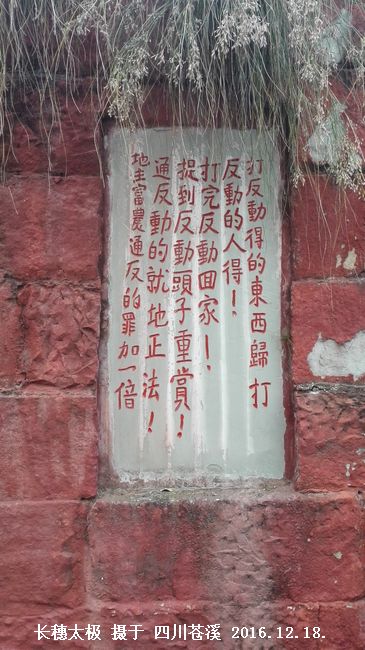 打反動得的東西歸打
反動的人得！
打完反動回家！、
捉到反動頭子重賞！
通反動的就地正法！
地主富農通反的罪加一倍
长穗太极 摄于 四川苍溪 2016.12.18.